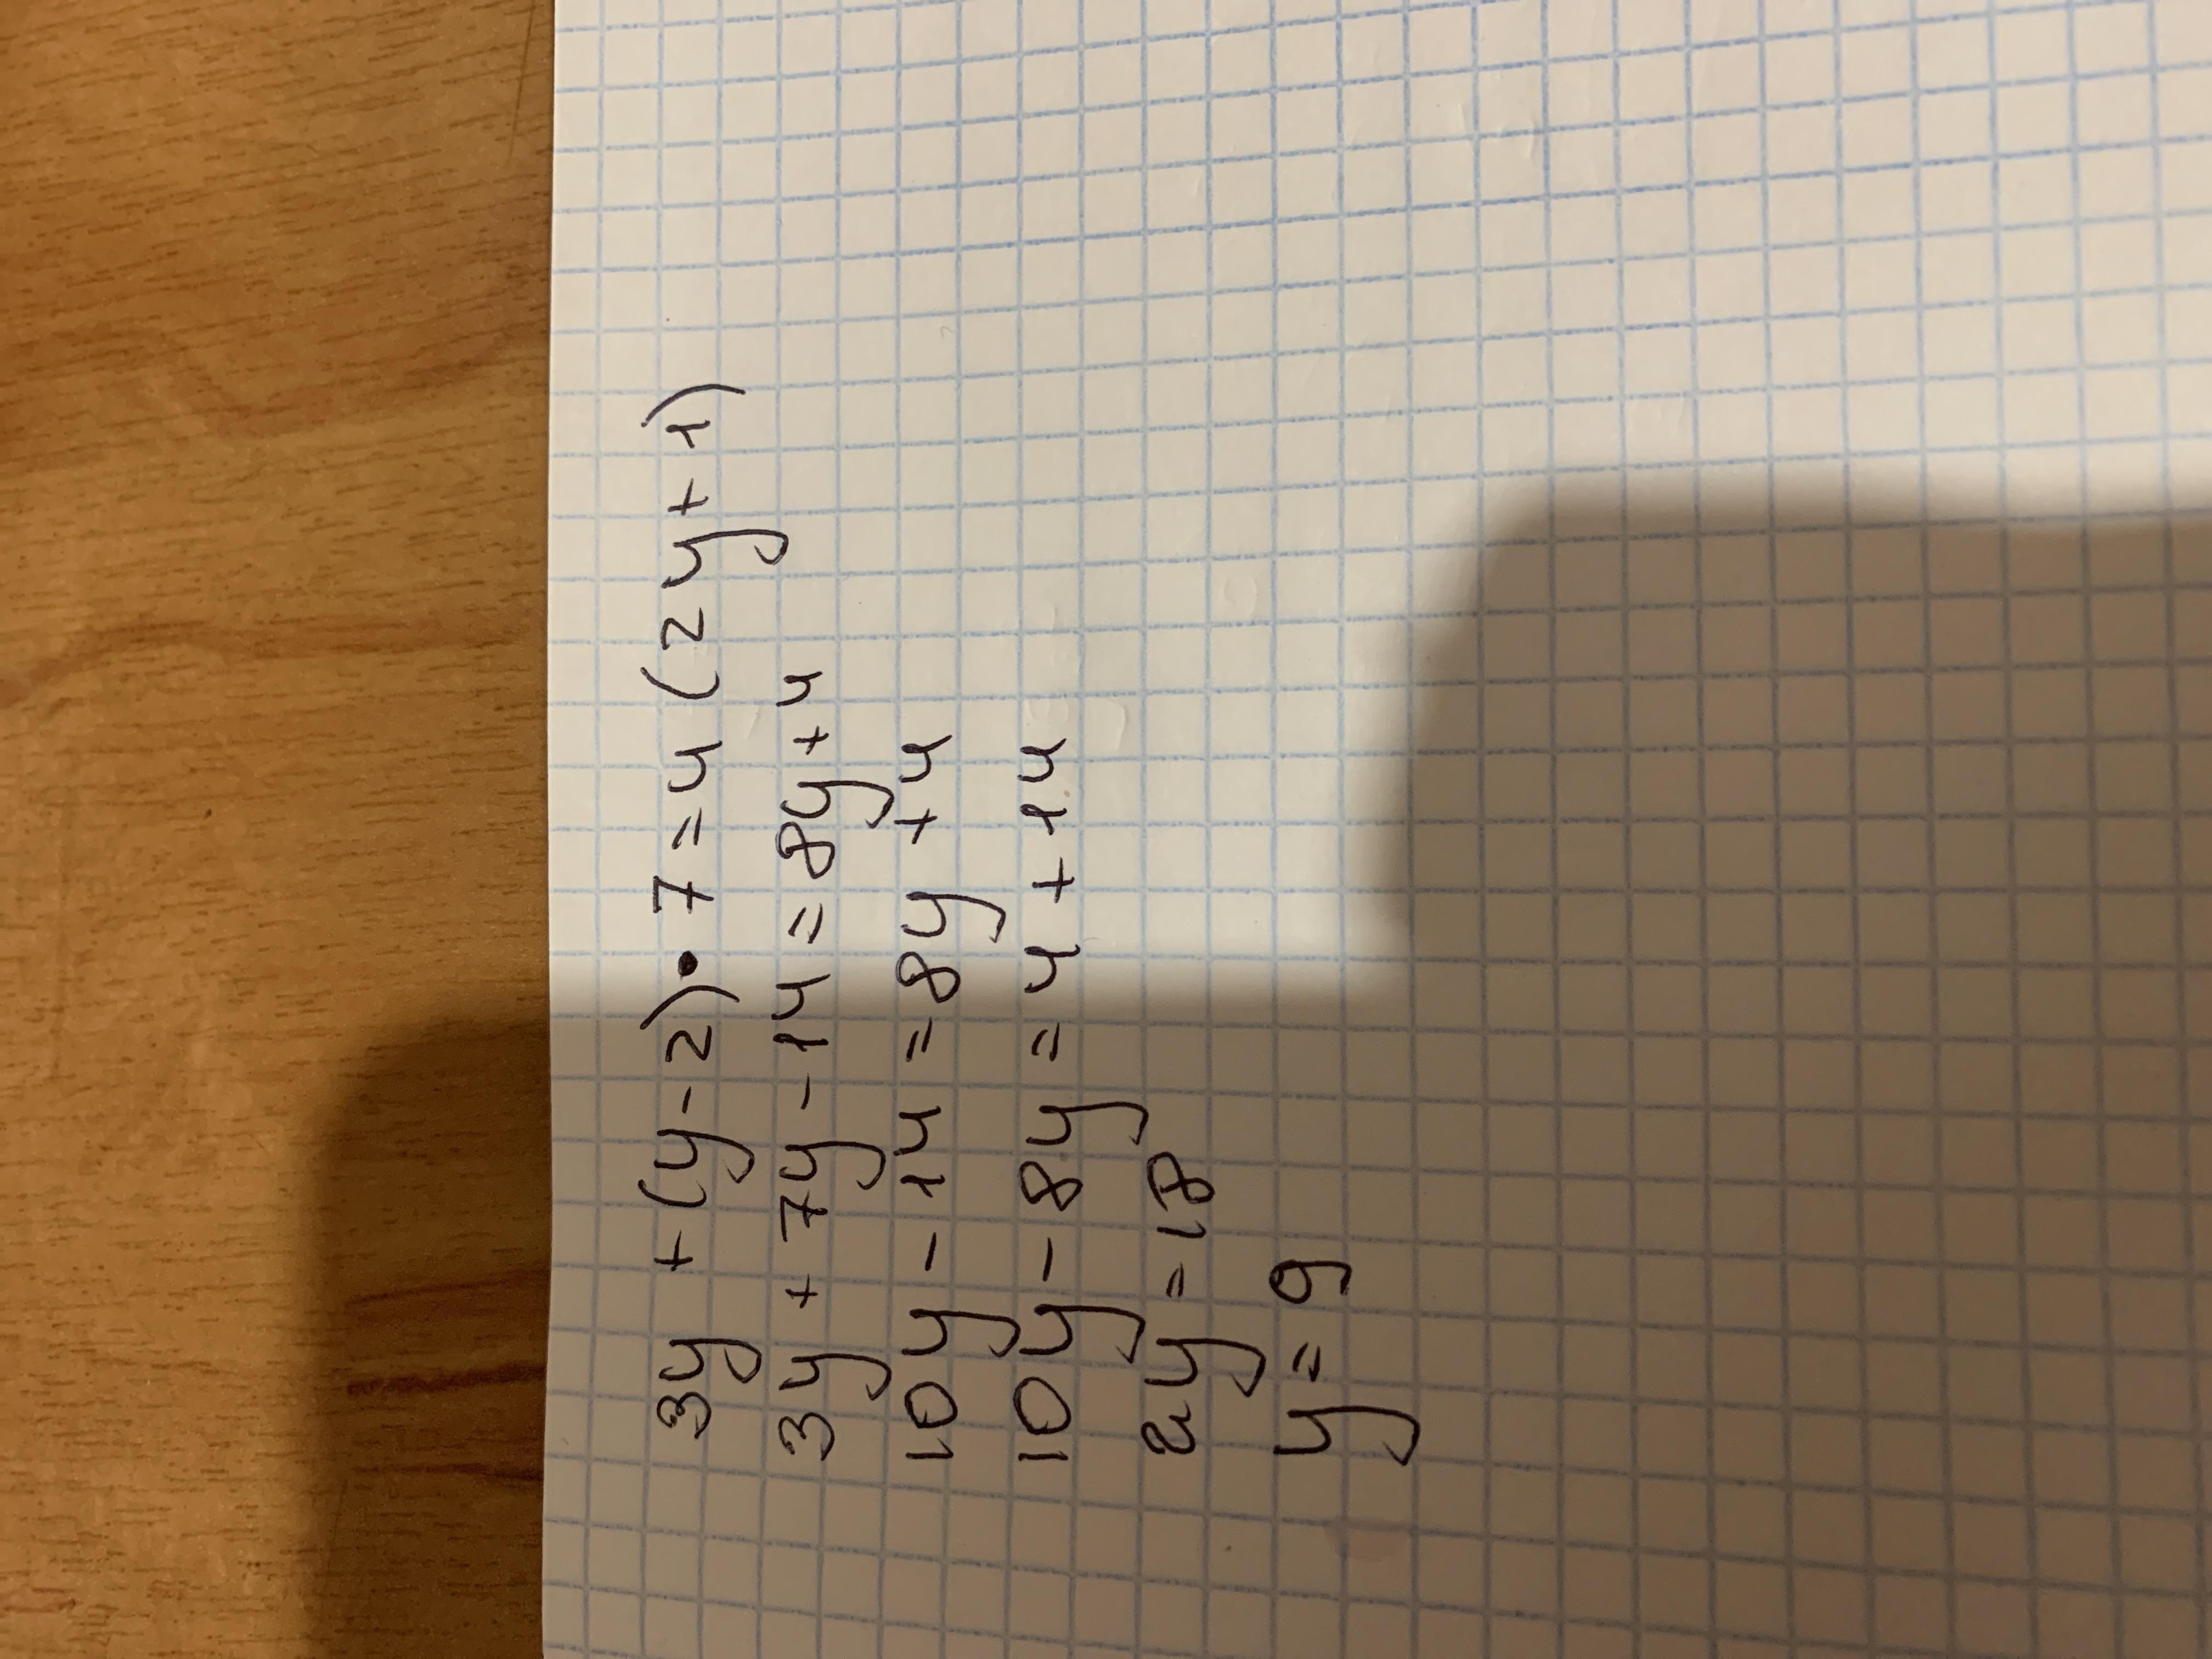 3y + (y-2)•7=4(2y+1)
3y + 7y-14=8y+4
10y-14=8y+4
10y-8y=4+14
2y=18
y=9